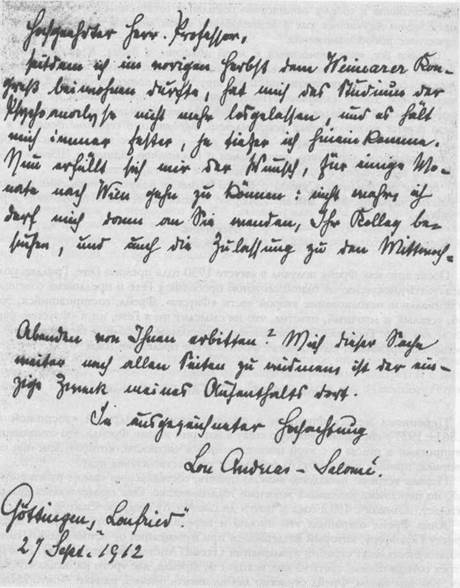 Hochgeehrter Herr Professor,
seitdem ich im vorigen Herbst dem Weimarer Kon-
greß beiwohnen durfte, hat mich das Studium der
Psychoanalyse nicht mehr losgelassen, und es hält
mich immer fester, je tiefer ich hineinkomme.
Nun erfüllt sich mir der Wunsch, für einige Mo-
nate nach Wien gehn zu können: nicht wahr, ich
darf mich dann an Sie wenden, Ihr Kolleg be-
suchen, und auch die Zulassung zu den Mittwoch-
Abenden von Ihnen erbitten? Mich dieser Sache
weiter nach allen Seiten zu widmen ist der ein-
zige Zweck meines Aufenthalts dort.
In ausgezeichneter Hochachtung
Lou Andreas-Salomé.
Göttingen, "Loufried".
27 Sept. 1912